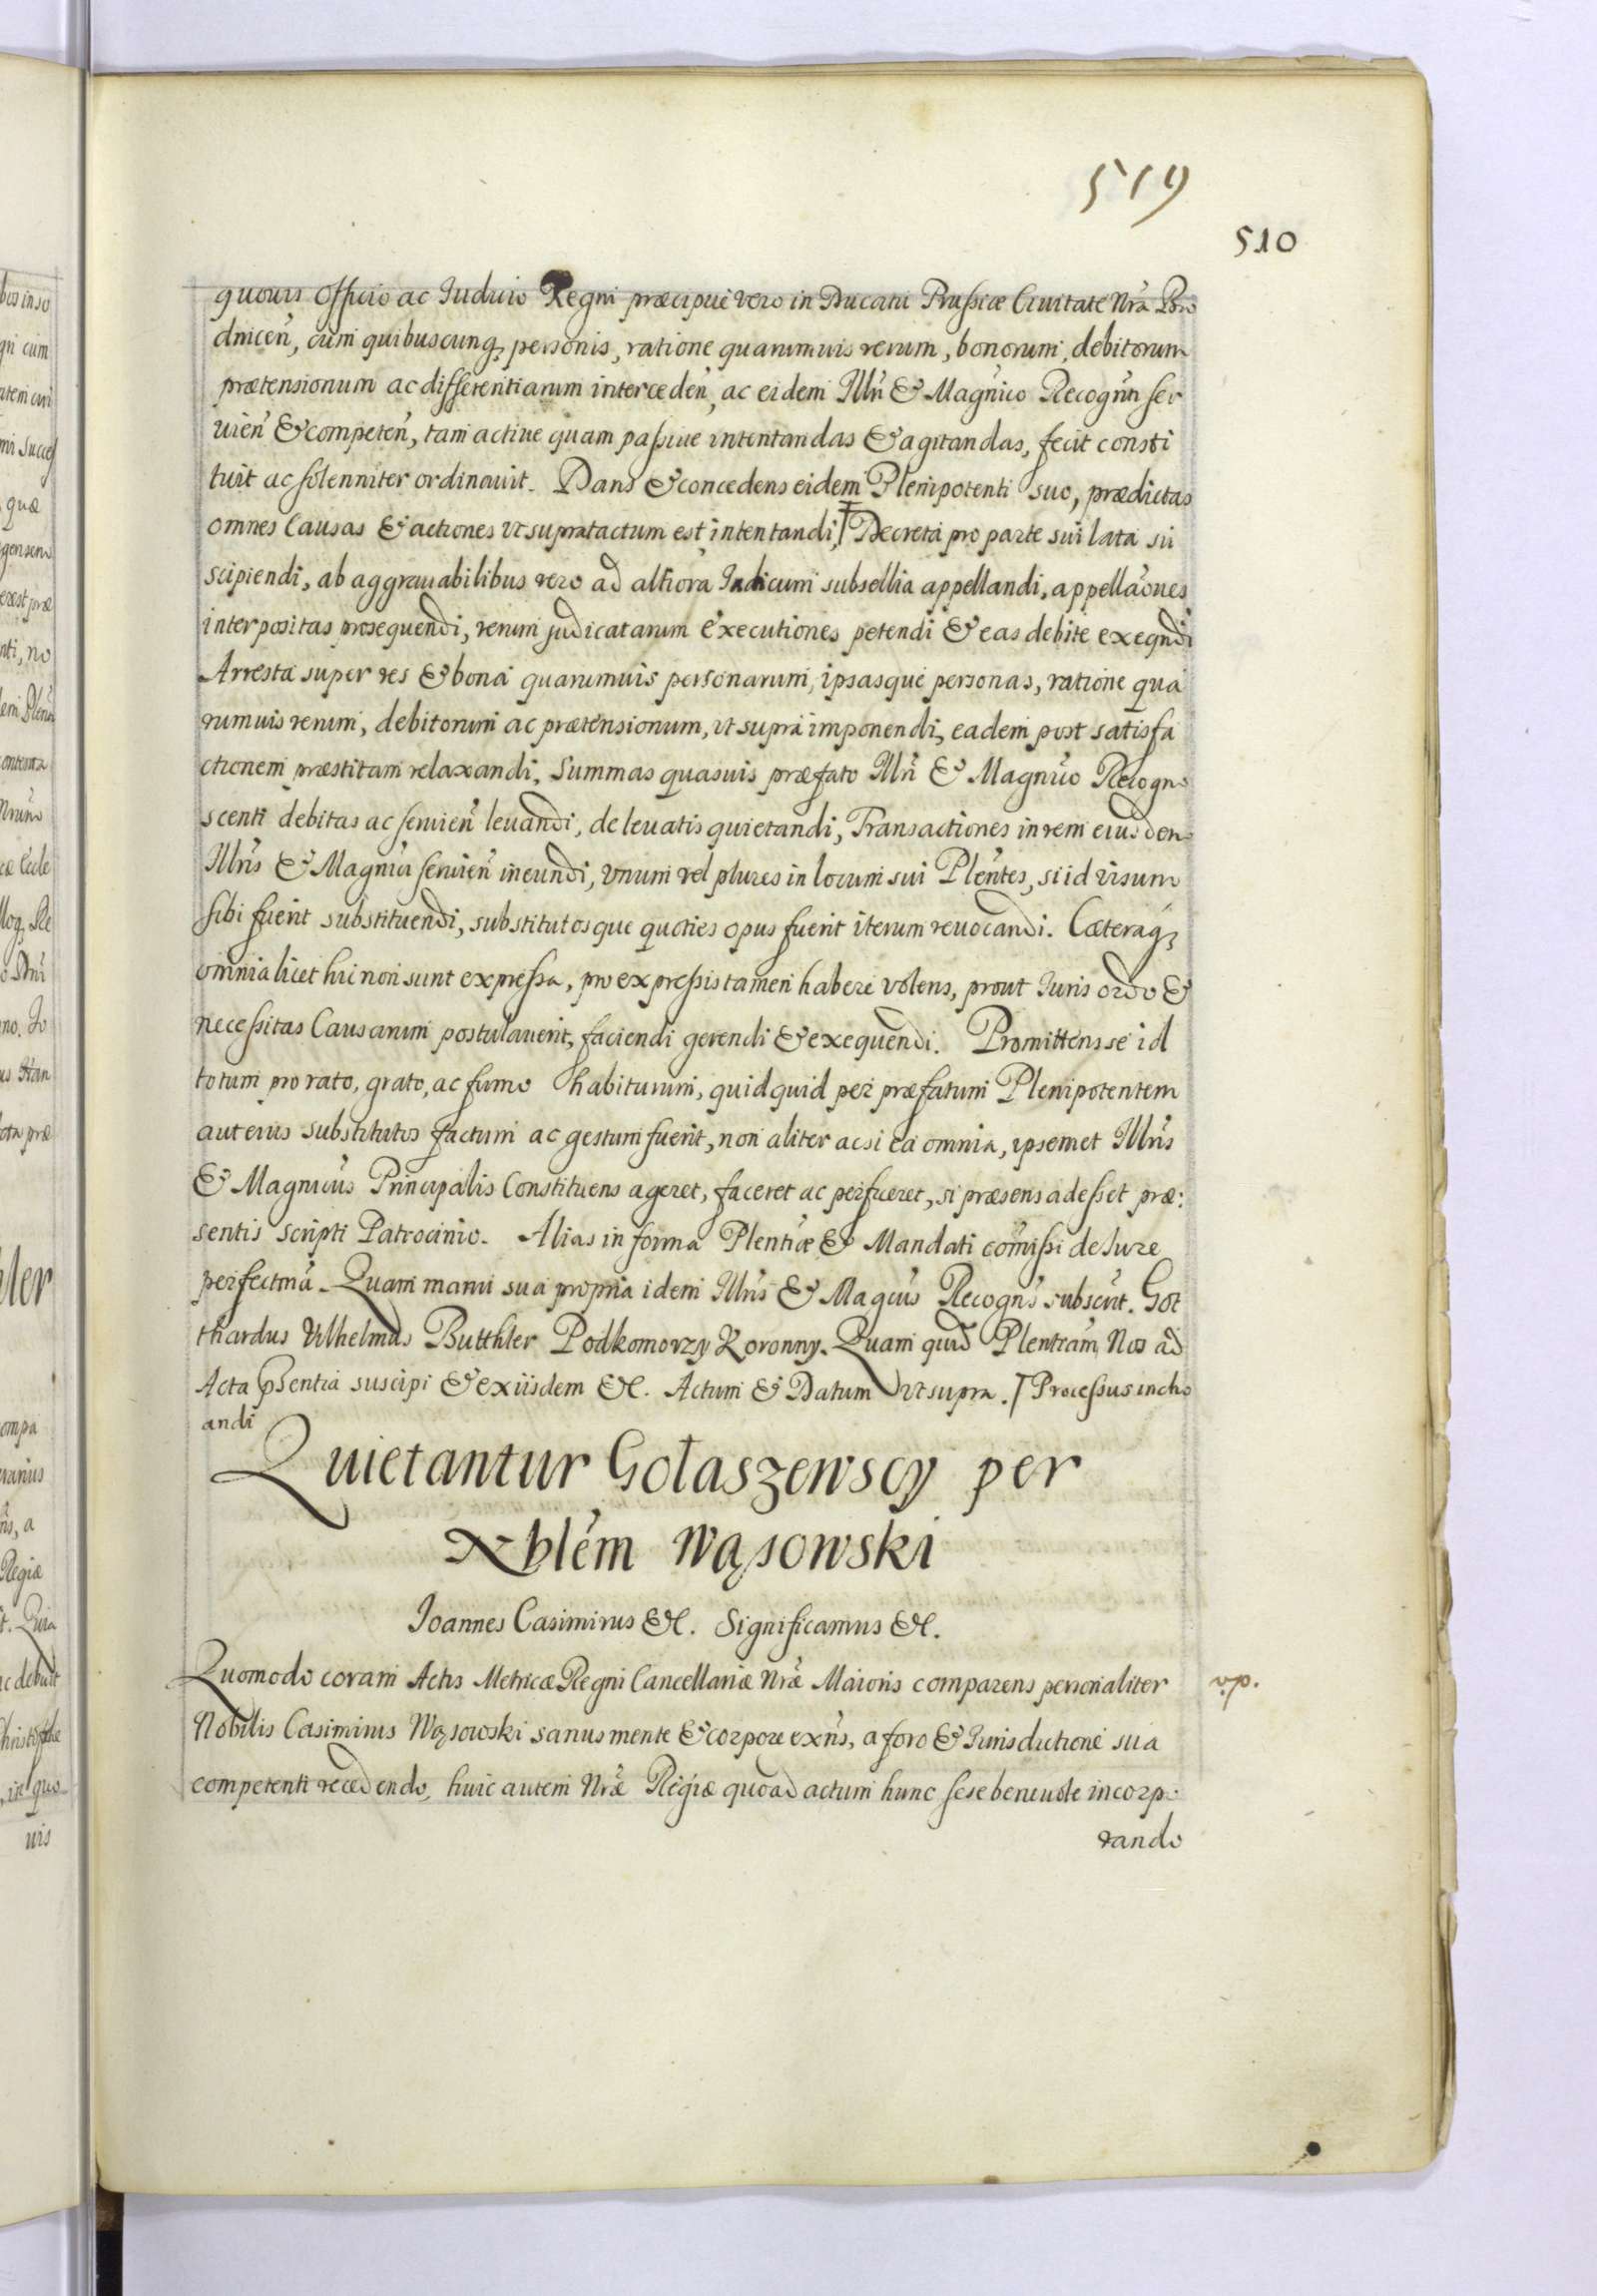 519
510
quouis Officio ac Iudicio Regni præcipue vero in Ducatu Prussiæ Ciuitate Nrã
dnicen̄, cum quibuscunq₃ personis, ratione quarumuis rerum, bonorum, debitorum
prætensionum ac differentiarum interceden̄, ac eidem Illri & Magnico Recognti ser
uien̄ & competen̄, tam actiue quam passiue intentandas & agitandas, fecit consti
tuit ac solenniter ordinauit. Dans & concedens eidem Plenipotenti suo, prædictas
omnes Causas & actiones vt supra tactum est intentandi, Ꞁ Decreta pro parte sui lata su
scipiendi, ab aggrauabilibus vero ad altiora Iudicum subsellia appellandi, appellãones
interpositas prosequendi, rerum judicatarum executiones petendi & eas debite exeqndi
Arresta super res & bona quarumuis personarum, ipsasque personas, ratione qua
rumuis rerum, debitorum ac prætensionum, vt supra imponendi, eadem post satisfa
ctionem præstitam relaxandi, Summas quasuis præfato Illri & Magnico Recogno
scenti debitas ac seruien̄ leuandi, de leuatis quietandi, Transactiones in rem eiusdem
Illris & Magnici seruien̄ ineundi, vnum vel plures in locum sui Plentes, si id visum
sibi fuerit substituendi, substitutosque quoties opus fuerit iterum reuocandi. Cæteraq₃
omnia licet hic non sunt expressa, pro expressis tamen habere volens, prout Iuris ordo &
necessitas Causarum postulauerit, faciendi gerendi & exequendi. Promittens se id
totum pro rato, grato, ac firmo habiturum, quidquid per præfatum Plenipotentem
aut eius substitutos factum ac gestum fuerit, non aliter acsi ea omnia, ipsemet Illris
& Magnicus Principalis Constituens ageret, faceret ac perficeret, si præsens adesset præ:
sentis scripti Patrocinio. Alias in forma Plentiæ & Mandati comissi de Iure
perfectmã. Quam manu sua propria idem Illris & Magcus Recogns subscrit. Got
thardus Vilhelmus Butthler Podkomorzy Koronny. Quam quid Plentiam Nos ad
Acta pšentia suscipi & exiisdem &c. Actum & Datum vt supra. Ꞁ Processus incho
andi
Quietantur Gołaszewscy per
Nblem Wąsowski
Ioannes Casimirus &c. Significamus &c.
Quomodo coram Actis Metricæ Regni Cancellariæ Nræ Maioris comparens personaliter
v.p.
Nobilis Casimirus Wąsowski sanus mente & corpore exns, a foro & Iurisdictione sua
competenti recedendo, huic autem Nræ Regiæ quoad actum hunc sese beneuole incorpo
rando